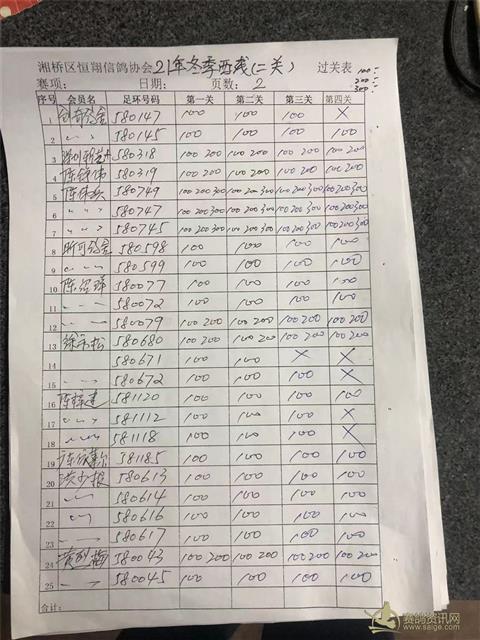 湘桥区恒翔信鸽协会21年冬季西线(二关) 过关表 100:
赛项: 日期: 页数: 2 200:
300:
序号 会员名 足环号码 第一关 第二关 第三关 第四关
1 580147 100 100 100 X
2 〃 580145 100 100 100 100
3 580318 100 200 100 200 100 200 100 200
4 580319 100 200 100 200 100 200 100 200
5 580749 100 200 300 100 200 300 100 200 300 100 200 300
6 〃 580747 100 200 300 100 200 300 100 200 300 100 200 300
7 〃 580745 100 200 300 100 200 300 100 200 300 100 200 300
8 580598 100 100 100 100
9 〃 580599 100 100 100 100
10 580077 100 100 100 100
11 〃 580072 100 100 100 100
12 〃 580079 100 200 100 200 100 200 100 200
13 580680 100 200 100 200 100 200 100 200
14 580671 100 100 X X
15 〃 580672 100 100 100 X
16 581120 100 100 100 100
17 〃 581112 100 100 100 X
18 〃 581118 100 100 100 X
19 581185 100 100 100 100
20 580613 100 100 100 100
21 〃 580614 100 100 100 100
22 〃 580616 100 100 100 100
23 〃 580617 100 100 100 100
24 580043 100 200 100 200 100 200 100 200
25 〃 580045 100 100 100 100
合计:
赛鸽资讯网
www.saige.com